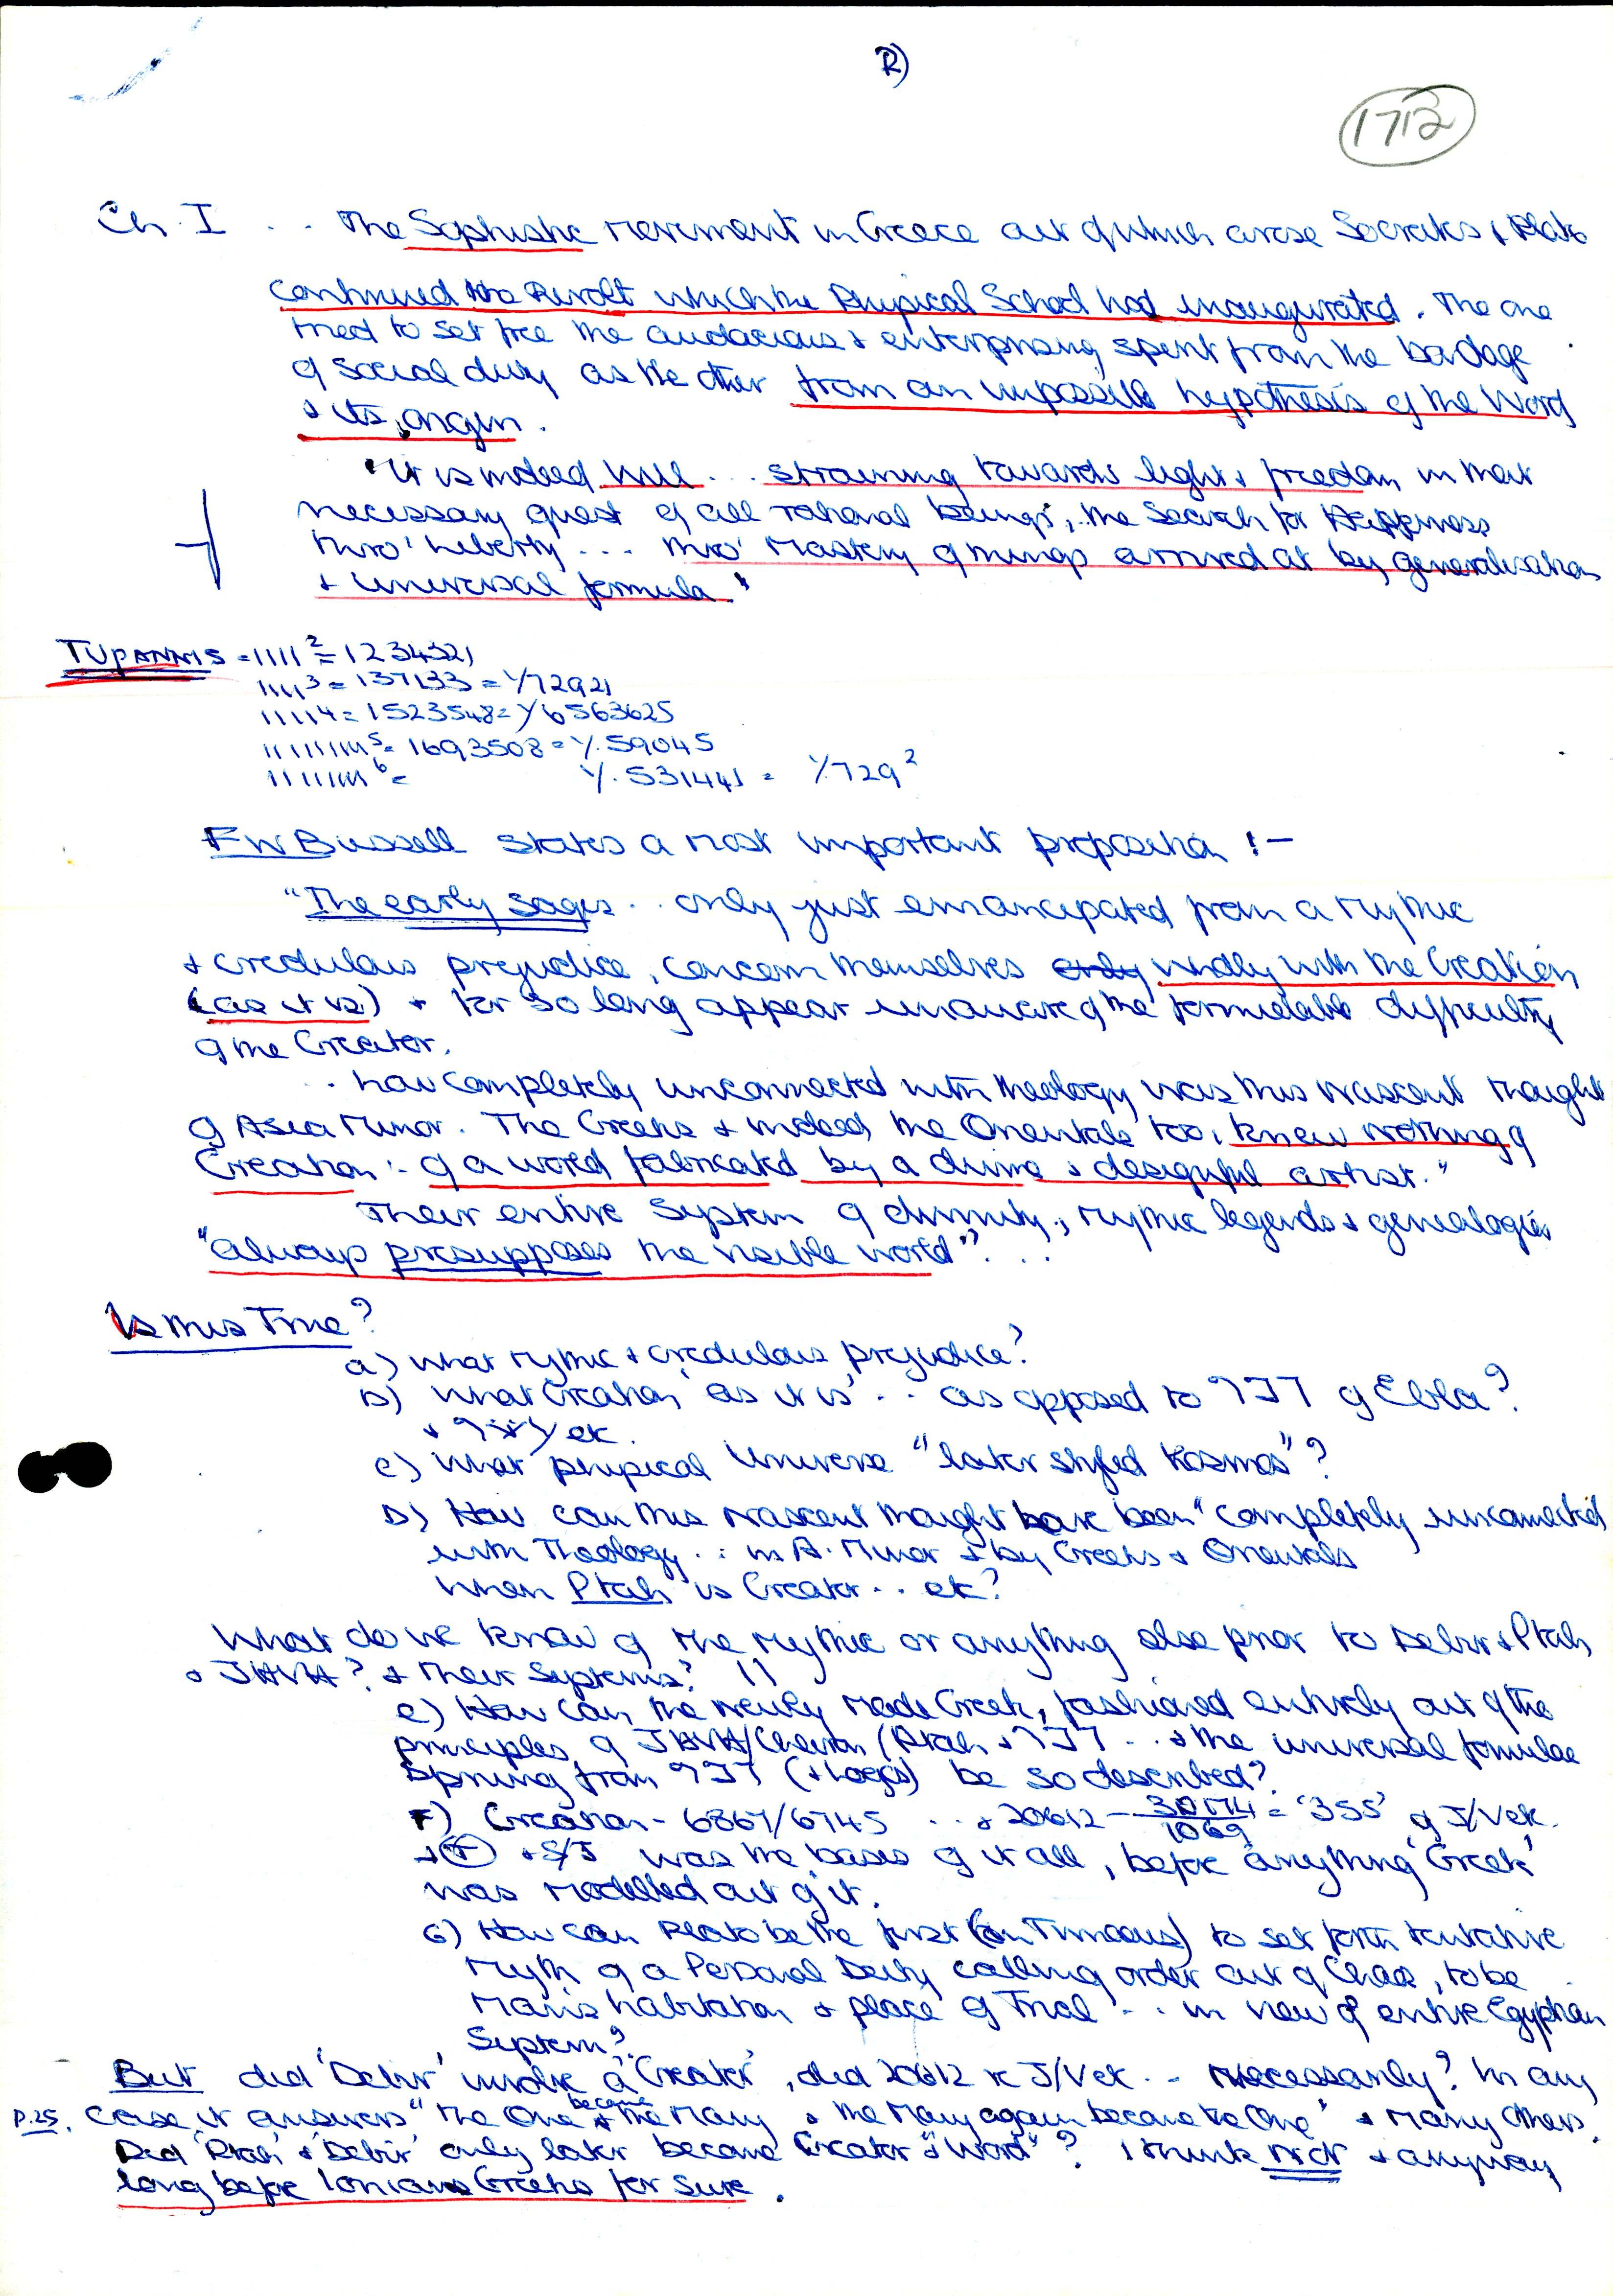 R)
1712
Ch. I .. The Sophistic Movement in Greece out of which arose Socrates & Plato
continued the Revolt which the Physical School had inaugurated. The one
tried to set free the audacious & enterprising spirit from the bondage
of social duty as the other from an impossible hypothesis of the World
& its origin.
"It is indeed ... straining towards light & freedom in that
necessary quest of all rational beings, the Search for Happiness
thro' Liberty ... thro' Mastery of things arrived at by generalisation
& universal formula."
TUPANNIS = 1111² = 1234321
1111³ = 137133 = 1/72921
11111⁴ = 1523548 = 1/6563625
= 1693508 = 1/.59045
1/.531441 = 1/729²
FW Bussell states a most important proposition :-
"The early sages .. only just emancipated from a mythic
& credulous prejudice, concern themselves only wholly with the Creation
(as it is) & for so long appear unaware of the formidable difficulty
of the Creator.
.. how completely unconnected with theology was this nascent thought
of Asia Minor. The Greeks & indeed the Orientals too, knew nothing of
Creation :- of a world fabricated by a divine & designful artist."
Their entire System of divinity, mythic legends & genealogies
"always presupposes the visible world"? ...
Is this True?
a) what mythic & credulous prejudice?
B) what Creation 'as it is' .. as opposed to of Ebla?
etc.
c) what physical Universe "later styled Kosmos"?
D) How can this nascent thought have been "completely unconnected
with Theology .. in A. Minor & by Greeks & Orientals
when Ptah is Creator .. etc?
What do we know of the mythic or anything else prior to Debir & Ptah
& JHVH? & their Systems? !!
e) How can the newly made Greek, fashioned entirely out of the
principles of JHVH/ (Ptah & .. & the universal formulae
springing from (& Logos) be so described?
F) Creation - 6867/6745 .. & 20612 - 30174/1069 = '355' of J/Vek.
& S/J was the basis of it all, before anything 'Greek'
was modelled out of it.
G) How can Plato be the first (in Timaeus) to set forth tentative
myth of a Personal Deity calling order out of Chaos, to be
Man's habitation & place of Trial .. in view of entire Egyptian
System?
But did 'Debir' involve a 'Creator', did 20612 J/Vek .. necessarily? In any
P.25. case it answers "the One became the Many & the Many again became the One" & Many Others.
Did 'Ptah' & 'Debir' only later become Creator & "Word"? I think not & anyway
long before Ionians Greeks for sure.